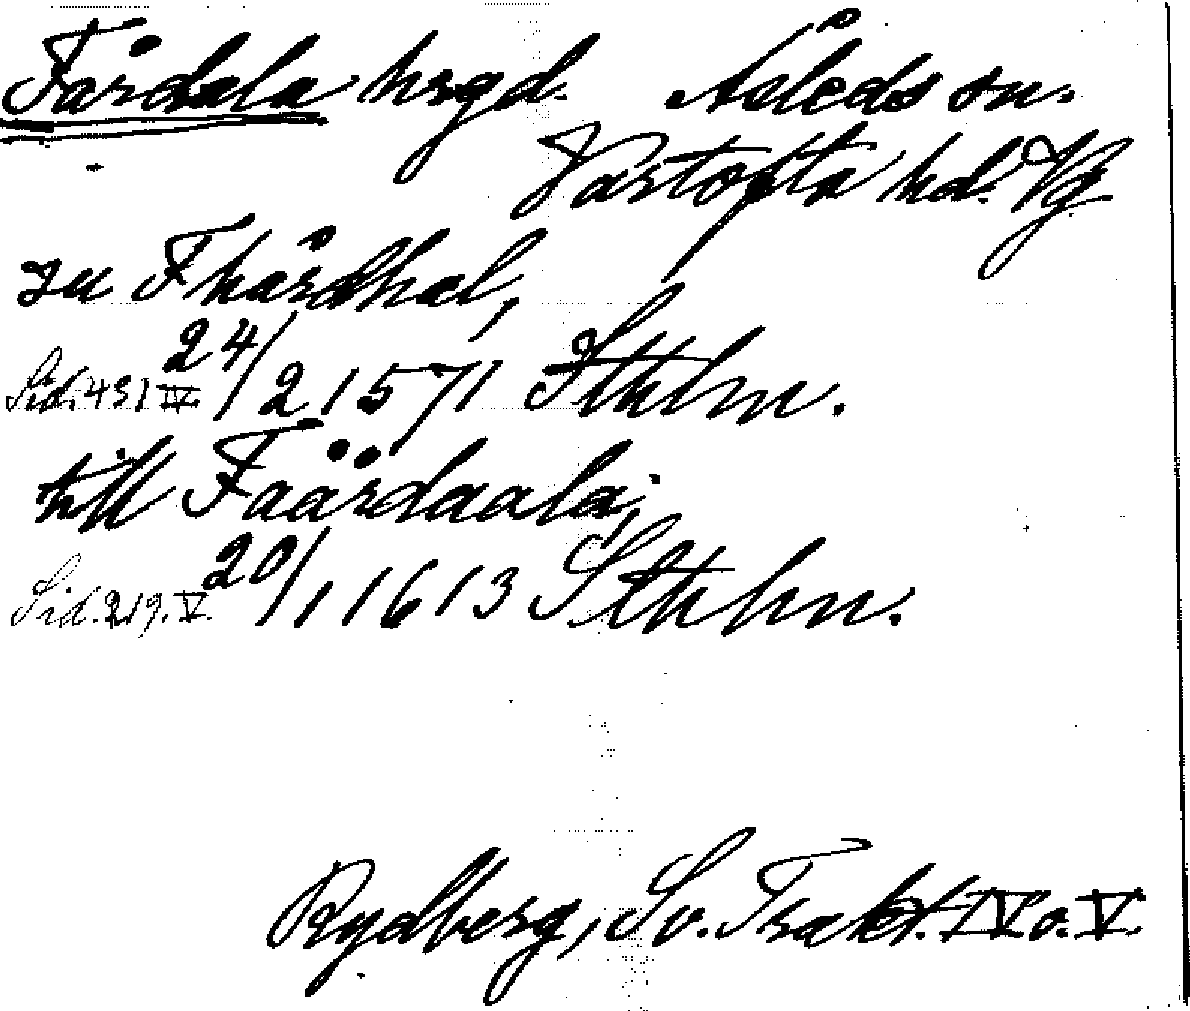 Fårdala hrgd. Åsleds sn.
Vartofta hd. Vg
zu Fhårdhal,
Sid. 431 IV. 24/2 1571 Sthlm.
till Faärdaala;
Sid. 219. V. 20/1 1613 Sthlm.
Rydberg, Sv. Trakt. IV o. V.